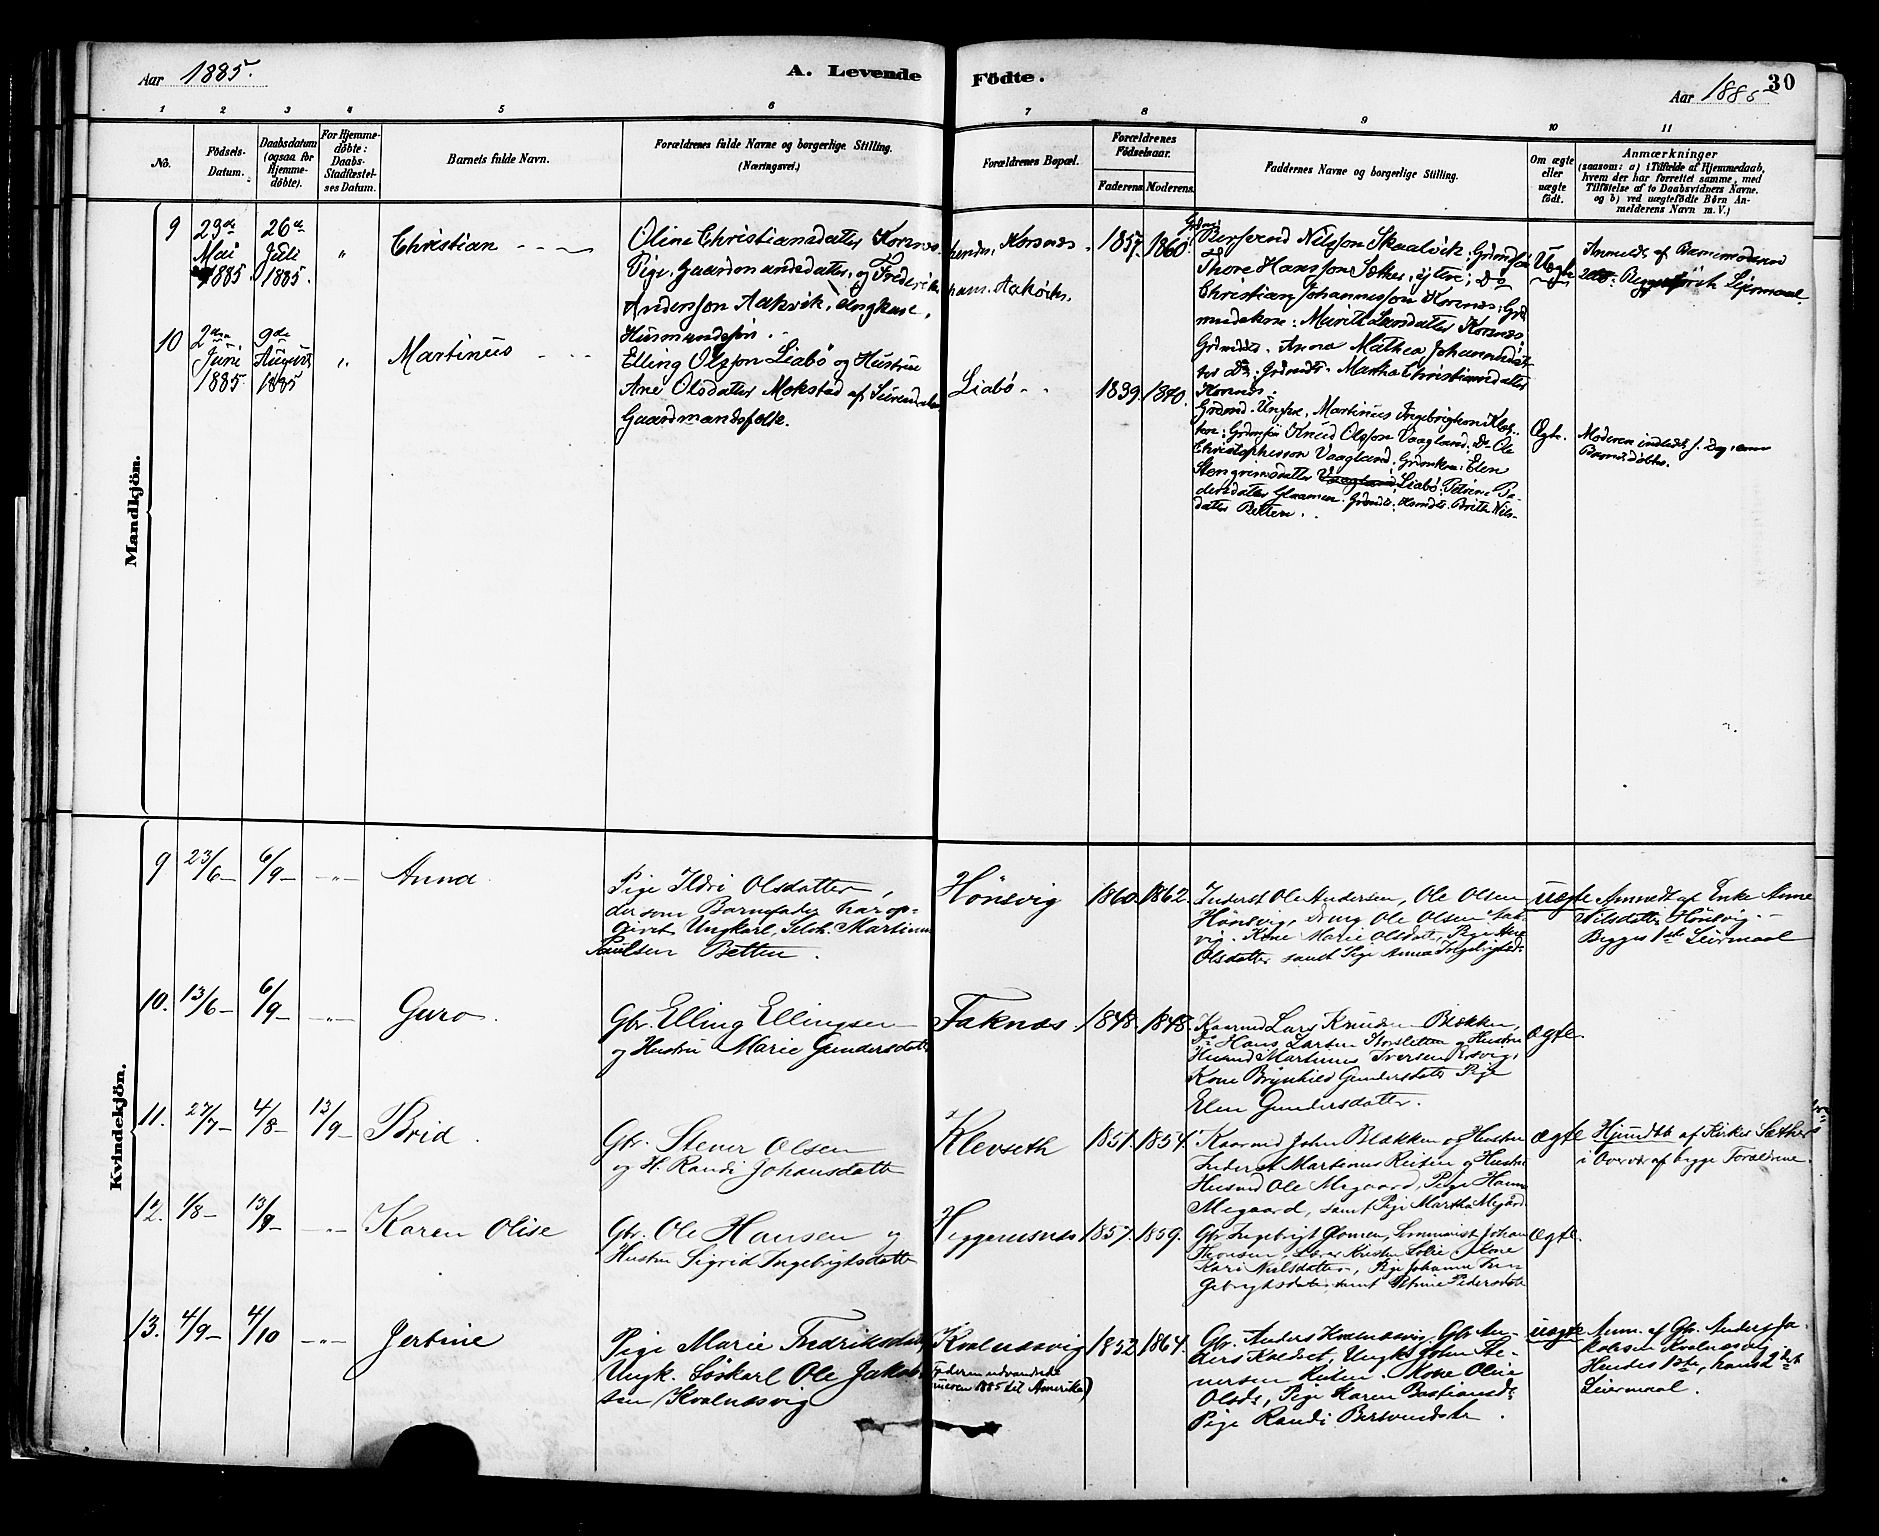 Aar 1885.
A. Levende Födte.
Aar 1885
30
1 2 3 4 5 6 7 8 9 10 11
No.
Födsels-
Datum.
Daabsdatum
(ogsaa for
Hjemme-
döbte).
For Hjemme-
döbte:
Daabs-
Stadfæstel-
ses Datum.
Barnets fulde Navn.
Forældrenes fulde Navne og borgerlige Stilling.
(Næringsvei.)
Forældrenes Bopæl.
Forældrenes
Födselsaar.
Faderens. Moderens.
Faddernes Navne og borgerlige Stilling.
Om ægte
eller
uægte
födt.
Anmærkninger
(saasom: a) i Tilfælde af Hjemmedaab,
hvem der har forrettet samme, med
Tilföielse af to Daabsvidners Navne.
og b) ved uægtefödte Börn An-
melderens Navn m. V.)
Mandkjön.
9
23de
Mai
1885
26de
Juli
1885.
"
Christian
Oline Christiansdatter Korsnes
Pige, Gaardmandsdatter, og Frederik
Andersson Aakvik, Ungkarl,
Husmandssön.
hendes Korsnes.
hans. Aakvik.
1857. 1860.
Bersvend Nilsson Skaalvik: Grdmsön
Thore Hansson Sæther, ; Do
Christian Johannesson Korsnes: Grd
mandskone: Marith Larsdatter Korsnes:
Grdmdtr. Anna Mathea Johannesdat-
ter Do: Grdmdtr. Martha Christiansdatter
Korsnes.
Uægte
Anmeldt af Barnemoderen
Leiermaal.
10
2den
Juni
1885.
9de
August
1885
"
Martinus
Elling Olsson Liabö og Hustrue
Ane Olsdatter Mokstad af Surendalen
Gaardmandsfolk.
Liabö
1839. 1840.
Grdmd. Ungkr. Martinus Ingebrigtson
Grdmsön Knud Olsson Vaagland: Do Ole
Christophersson Vaagland: Grdmkone: Elen
Stengrimsdatter Liabö: Petrine Pe-
dersdatter Glaamen. Grdmdtr: Brith Nils-
datter Betten.
Ægte.
Moderen indledt s. Dag som
Barnet döbtes.
Kvindekjön.
9
23/6
6/9
"
Anna.
Pige Ildri Olsdatter,
der som Barnefader har op-
givet Ungkarl, Selv. Martinus
Paulsen Betten.
Hönsvig
1860. 1862.
Inderst Ole Andersen, Ole Olsen
Hönsvig, Dreng Ole Olsen Aak-
vig. Kone Marie Olsdatr, Pige
Olsdatter samt Pige Anna Ingebrigtsd.
uægte
Anmeldt af Enke Anne
Nilsdatter Hönsvig.
Begges 1ste Leiermaal
10.
13/6
6/9
"
Guro.
Gbr. Elling Ellingsen
og Hustru Marie Gundersdatter
Taknæs.
1848. 1848.
Kaarmd Lars Knudsen Blækken,
Do Hans Larsen Storsletten og Hustru
Husmd Martinus Iversen
Kone Brynhild Gundersdatter Pige
Elen Gundersdatter.
ægte.
11.
27/7
4/8
13/9
Brid.
Gbr. Stener Olsen
og H. Randi Johansdatter
Klevseth
1851. 1854.
Kaarmd John Blækken og Hustru
Inderst Martinus Reiten og Hustru
Husmd Ole Megaard, Pige Hanna
Megaard, samt Pige Martha Megård
ægte
Hjemdbt. af Kirkes. Sæther
i Overvær af begge Forældrene.
12.
1/8
13/9
"
Karen Olise
Gbr. Ole Hansen og
Hustru Sigrid Ingebrigtsdatter
Heggemsnæs
1857. 1859.
Gbr Ingebrigt Glomen, Johan
Thorsen, Lærer Kristen Solie, Kone
Kari Nielsdatter, Pige Johanna In-
gebrigtsdatter, samt Pedersdatr
ægte.
13.
4/9
4/10
"
Jertine
Pige Marie Fredriksdatter
Ungk. Löskarl Ole Jakob-
sen Kvalnæsvig
Kvalnæsvig
(Faderen udvandrede
1885 til Amerika)
1852 1864.
Gbr. Anders Kvalnæsvig, Gbr An-
ders Kaldset, Ungk. John Ste-
nersen Reiten. Kone Oline
Olsdr, Pige Karen Bastiansdr
Pige Randi Bersvendsdr.
uægte
Anm. af Gbr. Anders Ja-
kobsen Kvalnæsvig
Hendes 1ste, hans 2det
Leiermaal.